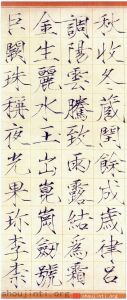 秋收冬藏閏餘成歲律呂
調陽雲騰致雨露結為霜
金生麗水玉出崑崗劍號
巨闕珠稱夜光果珎李柰